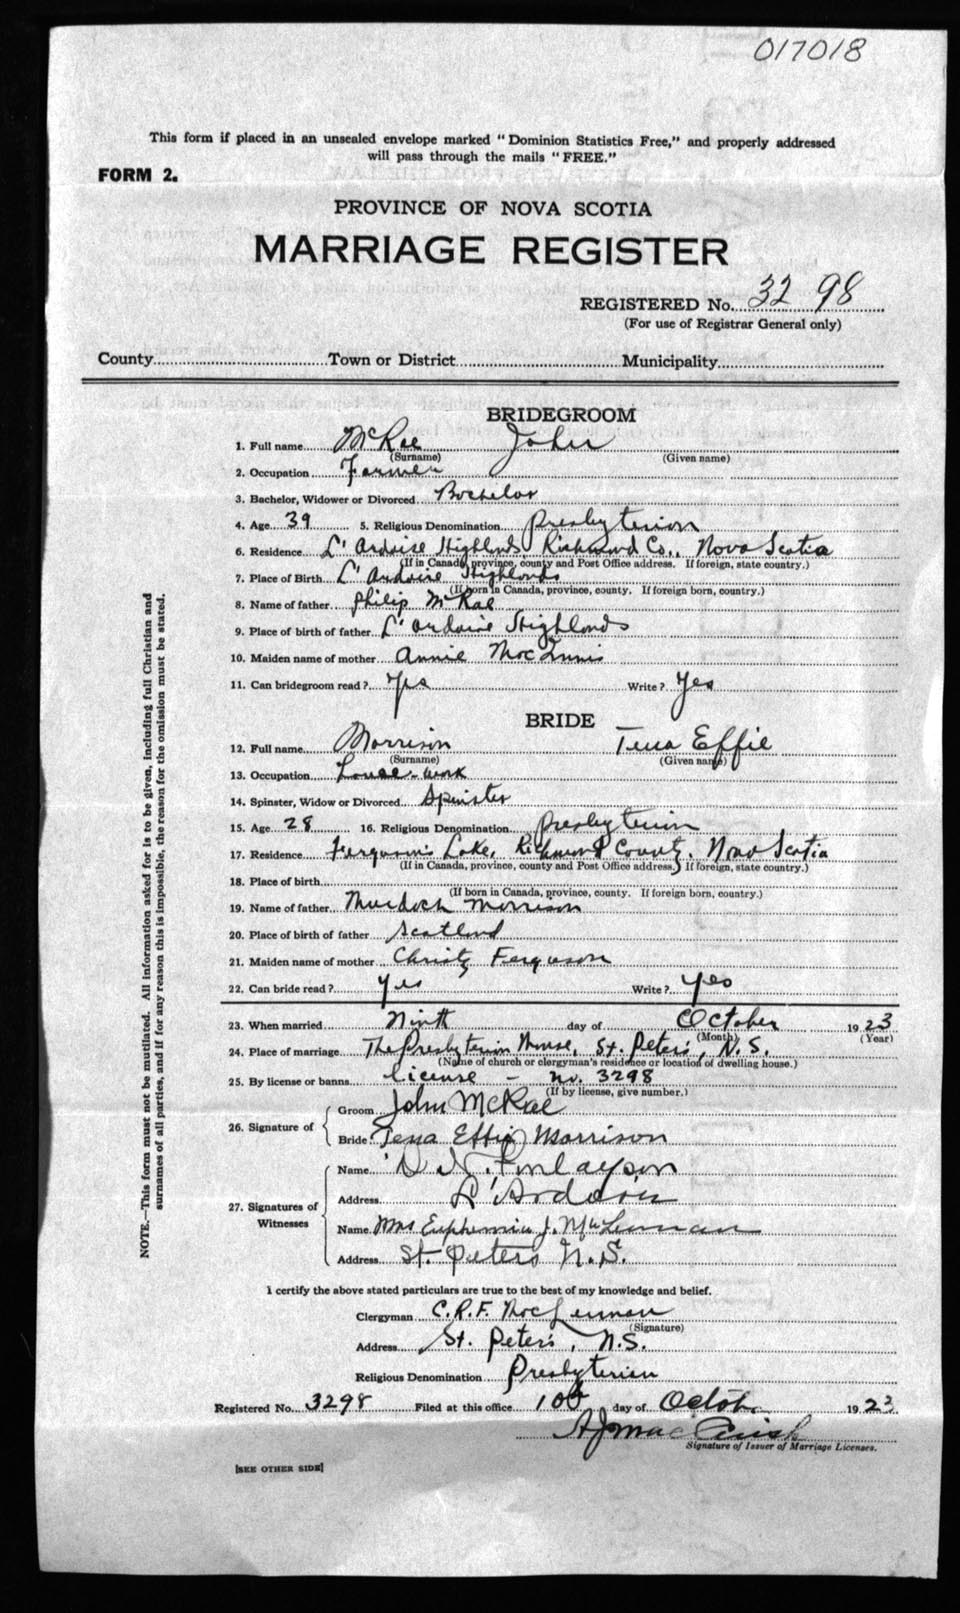 017018
This form if placed in an unsealed envelope marked "Dominion Statistics Free," and properly addressed
will pass through the mails "FREE."
FORM 2.
PROVINCE OF NOVA SCOTIA
MARRIAGE REGISTER
REGISTERED No. 3298
(For use of Registrar General only)
County Town or District Municipality
BRIDEGROOM
1. Full name McRae John
(Surname) (Given name)
2. Occupation Farmer
3. Bachelor, Widower or Divorced Bachelor
4. Age 39 5. Religious Denomination Presbyterian
6. Residence L'Ardoise Highlands Richmond Co., Nova Scotia
(If in Canada, province, county and Post Office address. If foreign, state country.)
7. Place of Birth L'Ardoise Highlands
(If born in Canada, province, county. If foreign born, country.)
8. Name of father Philip McRae
9. Place of birth of father L'Ardoise Highlands
10. Maiden name of mother Annie MacInnis
11. Can bridegroom read? Yes Write? Yes
BRIDE
12. Full name Morrison Tena Effie
(Surname) (Given name)
13. Occupation House-work
14. Spinster, Widow or Divorced Spinster
15. Age 28 16. Religious Denomination Presbyterian
17. Residence Ferguson's Lake, Richmond County, Nova Scotia
(If in Canada, province, county and Post Office address. If foreign, state country.)
18. Place of birth
(If born in Canada, province, county. If foreign born, country.)
19. Name of father Murdoch Morrison
20. Place of birth of father Scotland
21. Maiden name of mother Christy Ferguson
22. Can bride read? Yes Write? Yes
23. When married Ninth day of October 1923
(Month) (Year)
24. Place of marriage The Presbyterian Manse, St. Peter's, N.S.
(Name of church or clergyman's residence or location of dwelling house.)
25. By license or banns License - no. 3298
(If by license, give number.)
26. Signature of
Groom John McRae
Bride Tena Effie Morrison
27. Signatures of Witnesses
Name D. N. Finlayson
Address L'Ardoise
Name Mrs Euphemia J. MacLennan
Address St. Peters N.S.
I certify the above stated particulars are true to the best of my knowledge and belief.
Clergyman C.R.F. MacLennan
(Signature)
Address St. Peter's, N.S.
Religious Denomination Presbyterian
Registered No. 3298 Filed at this office 10th day of October 1923
Signature of Issuer of Marriage Licenses.
[SEE OTHER SIDE]
NOTE.—This form must not be mutilated. All information asked for is to be given, including full Christian and
surnames of all parties, and if for any reason this is impossible, the reason for the omission must be stated.